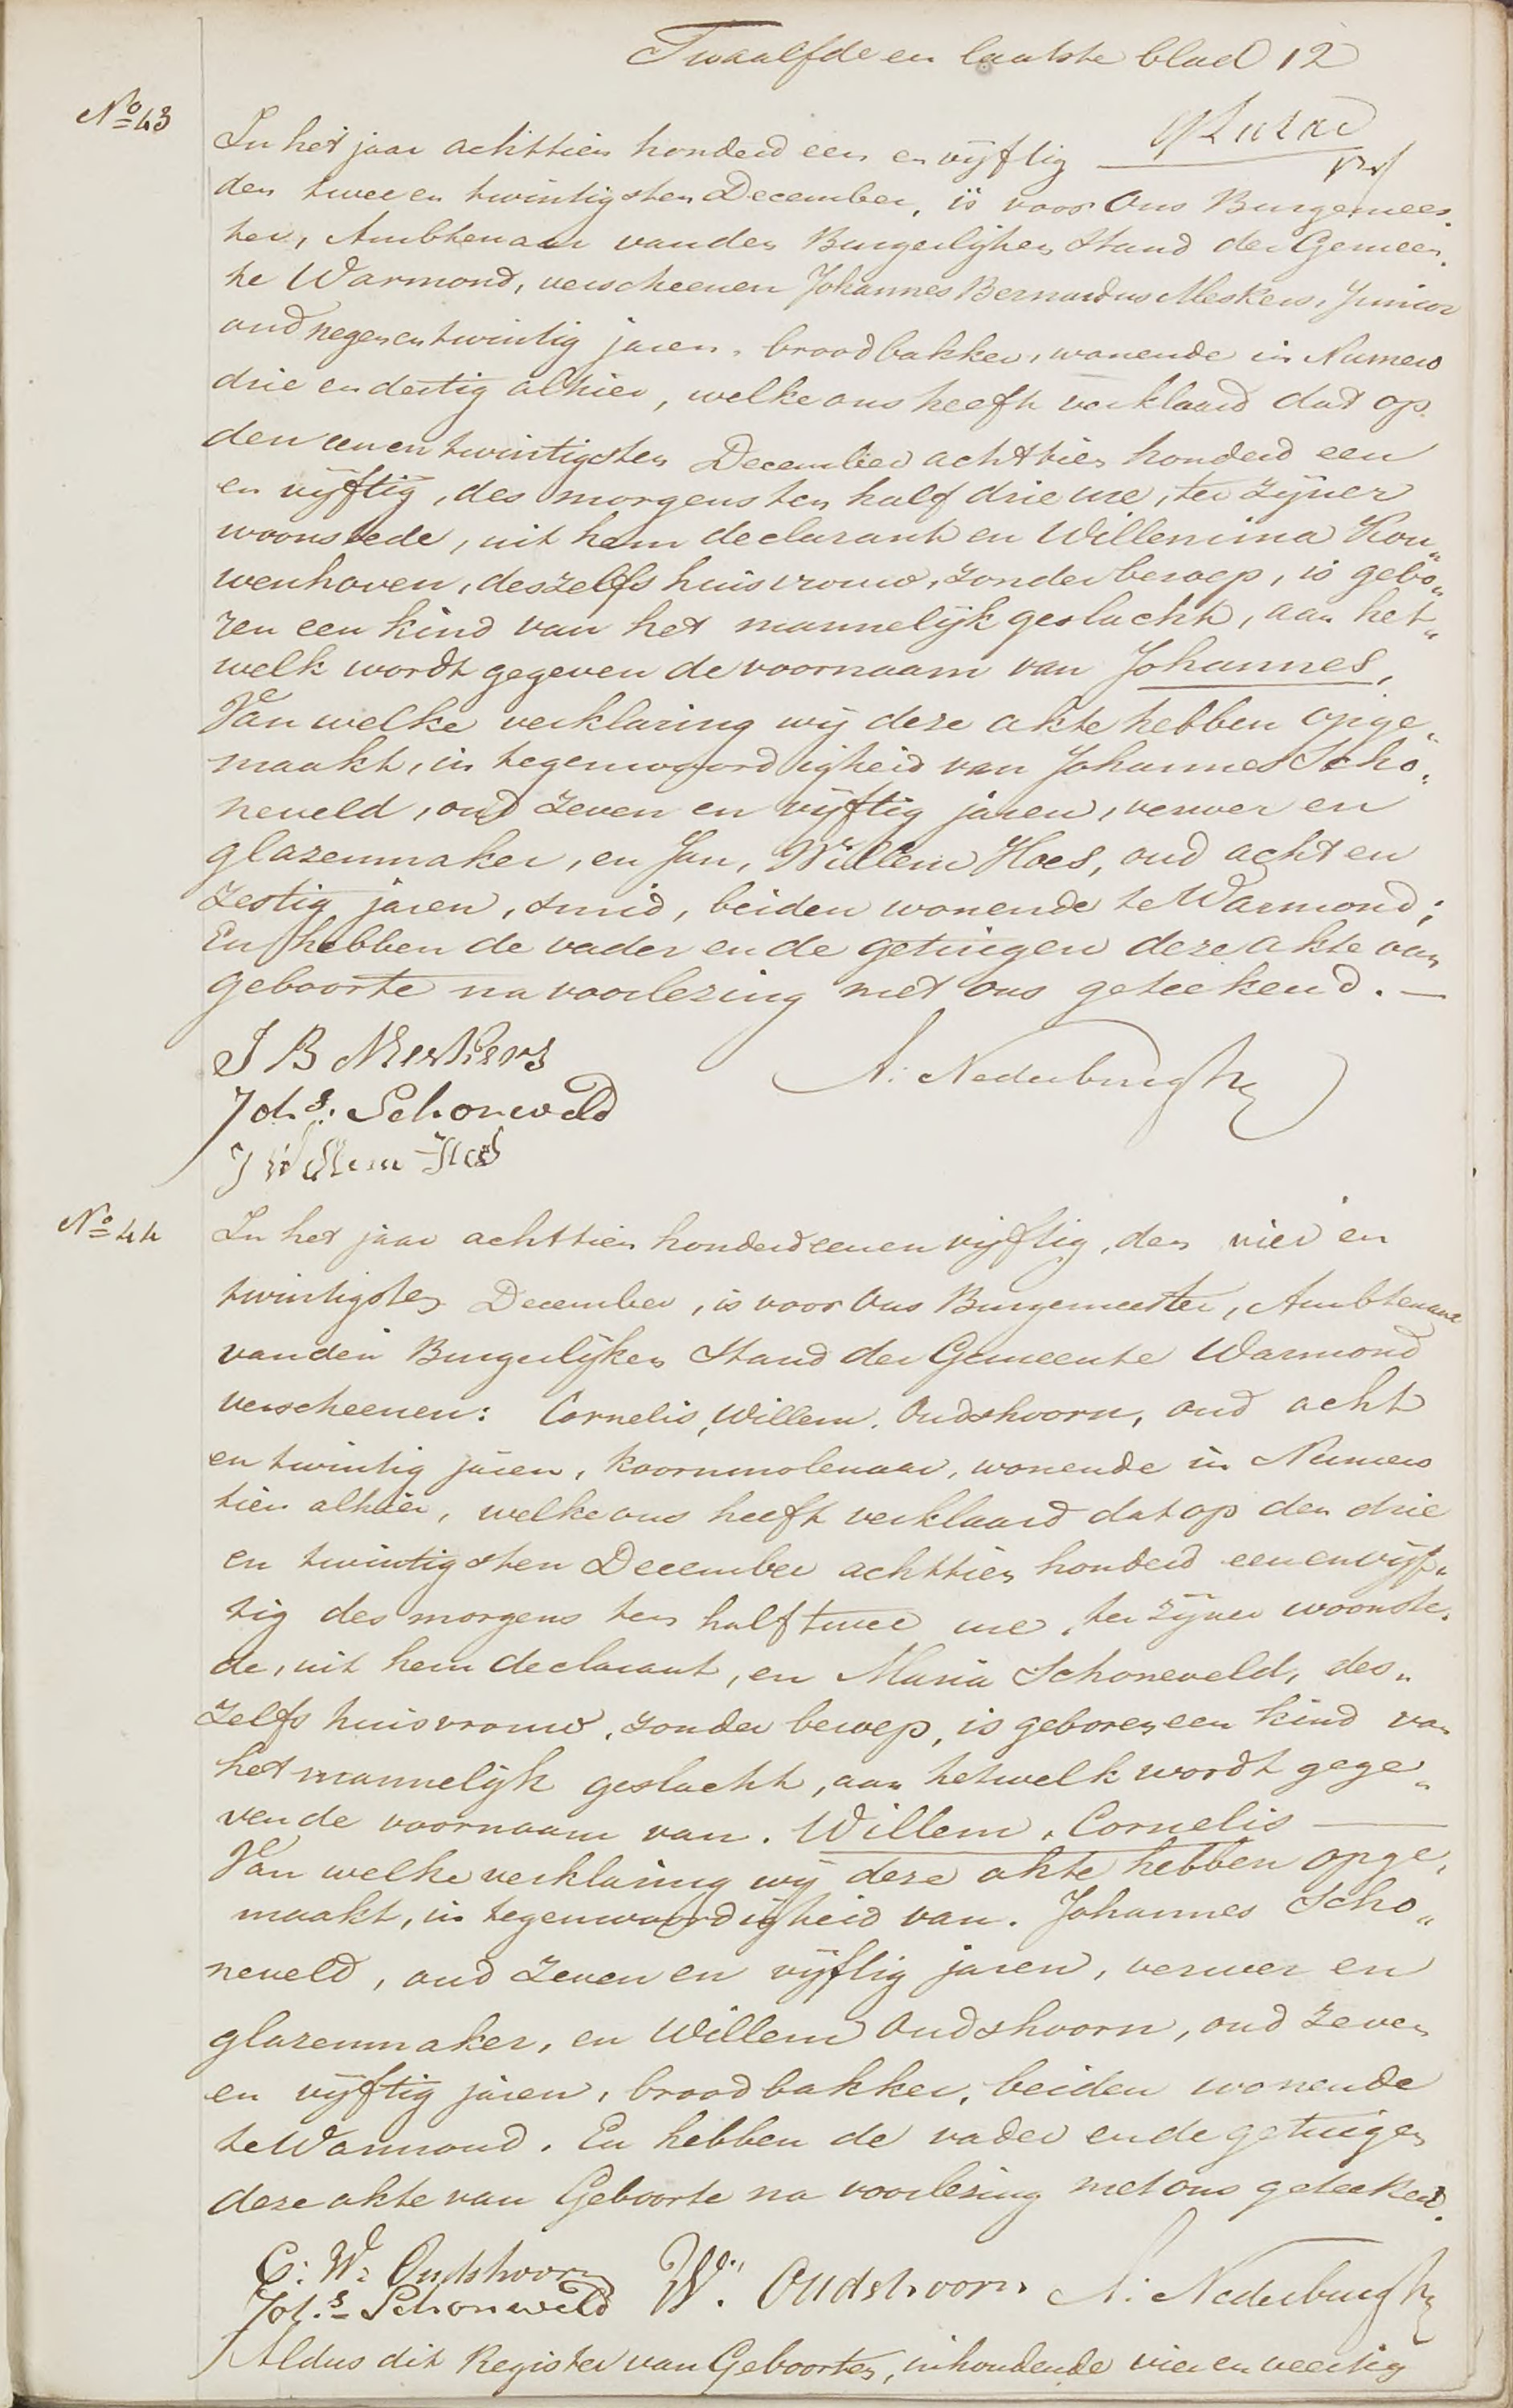 Twaalfde en laatste blad 12
No 43
In het jaar achttien honderd een en vijftig
den twee en twintigsten December, is voor Ons Burgemees„
ter, Ambtenaar van den Burgerlijken Stand der Gemeen„
te Warmond, verscheenen Johannes Bernardus Meskers, Junior
oud negen en twintig jaren, broodbakker, wonende in Numero
drie en dertig alhier, welke ons heeft verklaard dat op
den een en twintigsten December achttien honderd een
en vijftig, des morgens ten half drie ure, ter zijner
woonstede, uit hem declarant en Willemina Kou„
wenhoven, deszelfs huisvrouw, zonder beroep, is gebo„
ren een kind van het mannelijk geslacht, aan het„
welk wordt gegeven de voornaam van Johannes,
Van welke verklaring wij deze akte hebben opge„
maakt, in tegenwoordigheid van Johannes Scho„
neveld, oud zeven en vijftig jaren, verwer en
glazenmaker, en Jan, Willem Hoes, oud acht en
zestig jaren, smid, beiden wonende te Warmond;
En hebben de vader en de getuigen deze akte van
geboorte na voorlezing met ons geteekend. —
J B Meskers
A: Nederburgh
Johs: Schoneveld
J Willem Hoes
No 44
In het jaar achttien honderd een en vijftig, den vier en
twintigsten December, is voor Ons Burgemeester, Ambtenaar
van den Burgerlijken Stand der Gemeente Warmond
verscheenen: Cornelis, Willem, Oudshoorn, oud acht
en twintig jaren, koornmolenaar, wonende in Numero
tien alhier, welke ons heeft verklaard dat op den drie
en twintigsten December achttien honderd een en vijf„
tig des morgens ten half twee ure, ter zijner woonste„
de, uit hem declarant, en Maria Schoneveld, des„
zelfs huisvrouw, zonder beroep, is geboren een kind van
het mannelijk geslacht, aan hetwelk wordt gege„
ven de voornaam van. Willem, Cornelis —
Van welke verklaring wij deze akte hebben opge„
maakt, in tegenwoordigheid van. Johannes Scho„
neveld, oud zeven en vijftig jaren, verwer en
glazenmaker, en Willem Oudshoorn, oud zeven
en vijftig jaren, broodbakker, beiden wonende
te Warmond. En hebben de vader en de getuigen
deze akte van Geboorte na voorlezing met ons geteekend.
C: W: Oudshoorn W. Oudshoorn A: Nederburgh
Johs Schoneveld
Aldus dit Register van Geboorten, inhoudende vier en veertig